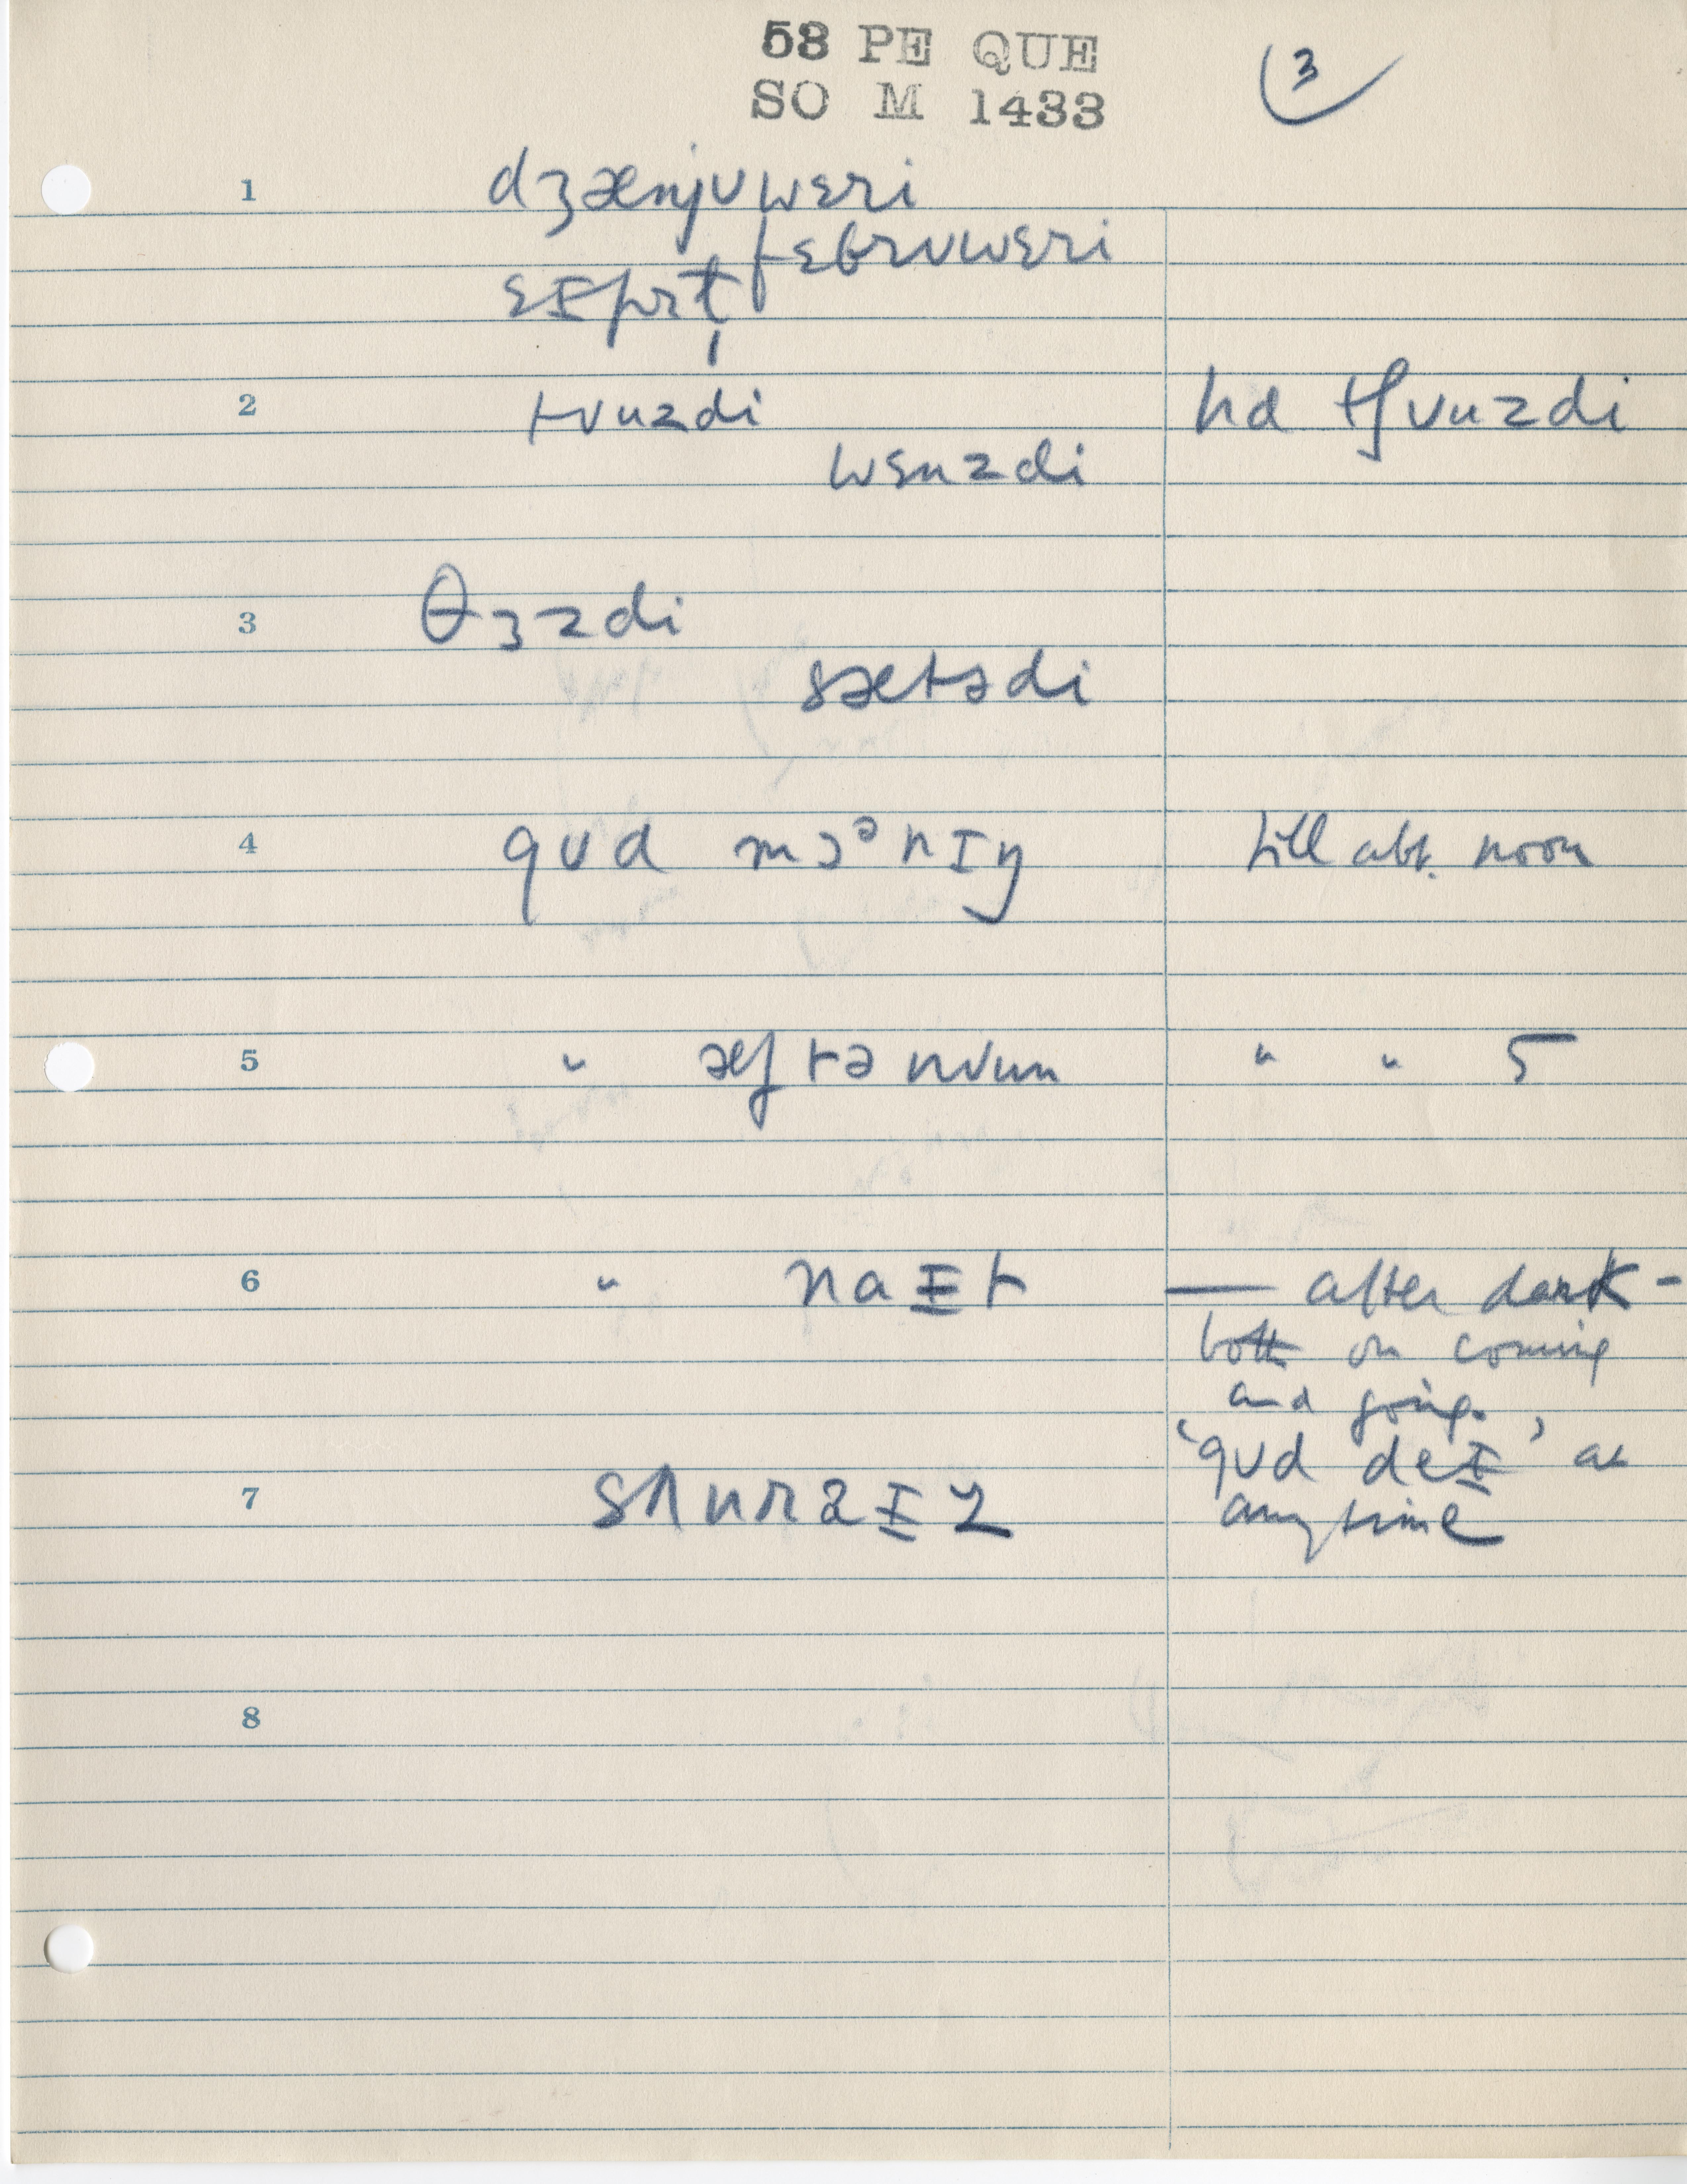 58 PE QUE
SO M 1433
3
1 dʒænjʊwɛri
fɛbrʊwɛri
2 tʊuzdi hd tʃʊuzdi
wɛnzdi
3 θɜzdi
sætədi
4 gʊd mɔᵊnɪŋ till abt. noon
5 " æftənʊun " " 5
6 " naɪt — after dark -
both on coming
and going.
'gʊd deɪ' at
any time
7 sʌnraɪz
8